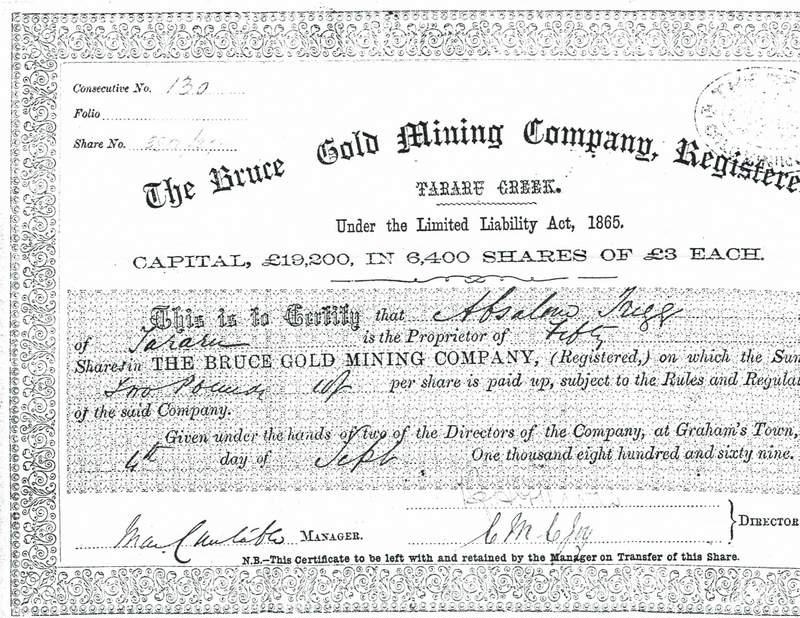 Consecutive No. 130
Folio
Share No.
The Bruce Gold Mining Company, Registere
TARARU CREEK.
Under the Limited Liability Act, 1865.
CAPITAL, £19,200, IN 6,400 SHARES OF £3 EACH.
This is to Certify that Absalom Trigg
of Tararu is the Proprietor of Fifty
Shares in THE BRUCE GOLD MINING COMPANY, (Registered,) on which the Sum
Two Pounds per share is paid up, subject to the Rules and Regula
of the said Company.
Given under the hands of two of the Directors of the Company, at Graham's Town,
4th day of Sept One thousand eight hundred and sixty nine.
MANAGER.
DIRECTOR
N.B.—This Certificate to be left with and retained by the Manager on Transfer of this Share.